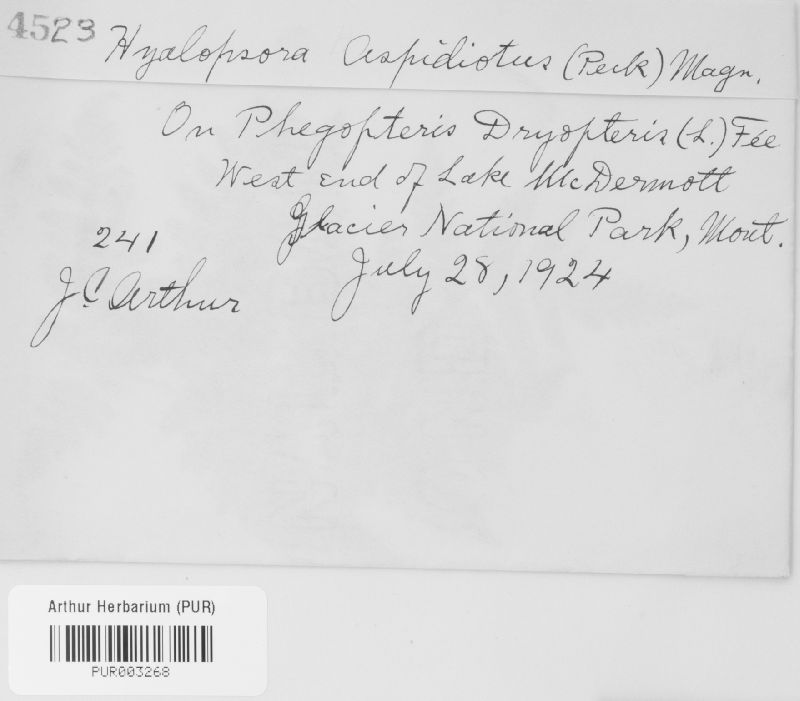 4523 Hyalopsora Aspidiotus (Peck) Magn.
On Phegopteris Dryopteris (L.) Fée
West end of Lake McDermott
Glacier National Park, Mont.
241
July 28, 1924
J C Arthur
Arthur Herbarium (PUR)
PUR003268